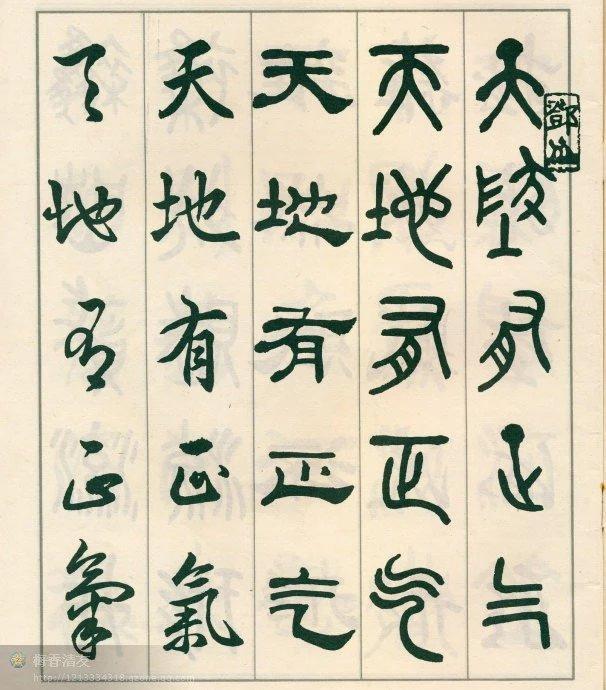 天地有正气
天地有正气
天地有正气
天地有正氣
天地有正氣
梅香清友
http://1213334318.qzone.qq.com